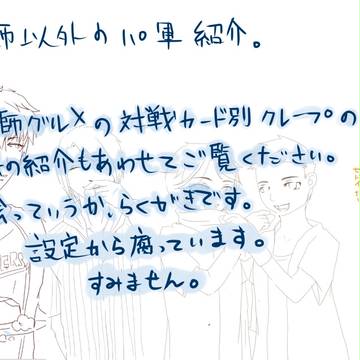 師以外の10軍紹介。
師グルメの対戦カード別クレープの
の紹介もあわせてご覧ください。
絵っていうか、らくがきです。
設定から腐っています。
すみません。